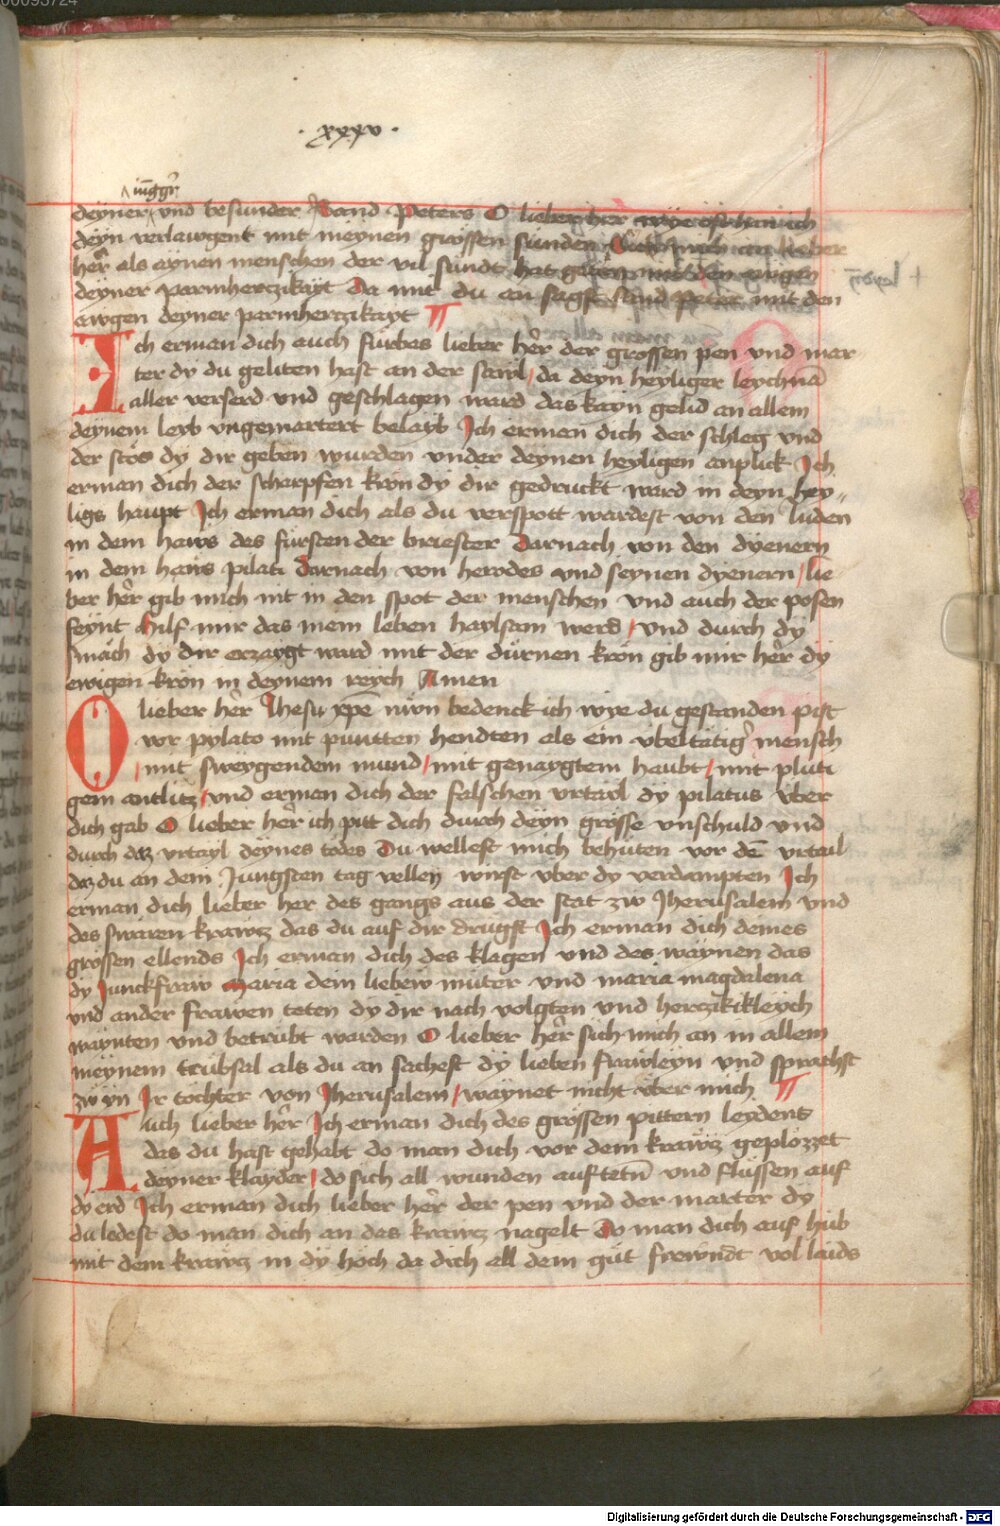 00093724
· xxxv ·
iu̅gg'
deyner und besunder Sand Peters O lieber her wye oft han ich
deyn verlawgent mit meynen grossen sunden Sich mich an lieber
her als aynen menschen der vil sundt hat gethon mit den awgen
deyner parmherczikayt Da mit du an sagst sand Peter mit den
awgen deyner parmherczikayt
Ich erman dich auch fürbas lieber her der grossen pen vnd mar
ter dy du geliten hast an der sawl / da deyn heyliger leychna̅
aller verserd vnd geschlagen ward das kayn gelid an allem
deynem leyb vngemartert belayb Ich erman dich der schleg vnd
der stös dy dir geben wurden vnder deynen heyligen anplick Ich
erman dich der scharpfen kron dy dir gedruckt ward in deyn hey
ligs haupt Ich erman dich als du verspott wardest von den Juden
in dem haws des fürsten der briester darnach von den dyenern
in dem haws pilati darnach von herodes vnd seynen dyenern / lie
ber her gib mich nit in den spot der menschen vnd auch der posen
feynt Hilf mir das mein leben haylsam werd / vnd durch dy
smach dy dir erzaygt ward mit der dürnen kron gib mir her dy
ewigen kron in deynem reych Amen
O lieber her Jhesu xpe̅ nwn bedenck ich wye du gestanden pist
vor pylato mit puntten hendten als ein vbeltätig' mensch
/ mit sweygendem mund / mit genaygtem haubt / mit pluti
gem antlitz / vnd erman dich der falschen vrtail dy pilatus vber
dich gab O lieber her ich pitt dich durch deyn grosse vnschuld vnd
durch daz vrtayl deynes todes Du wellest mich behüten vor de̅ vrtail
daz du an dem Jungsten tag vellen wirst vber dy verdampten Ich
erman dich lieber her des gangs aus der stat zw Jherusalem vnd
des swaren krawcz das du auf dir drugst Ich erman dich deines
grossen ellends Ich erman dich des klagen vnd des waynen das
dy Junckfraw Maria dein liebew müter vnd maria magdalena
vnd ander frawen teten dy dir nach volgten vnd herczikikleych
waynten vnd betrübt warden O lieber her sich mich an in allem
meynem trübsal als du an sachest dy lieben frawleyn vnd sprachst
zw yn Ir töchter von Jherusalem / waynet nicht vber mich
Auch lieber her Ich erman dich des grossen pittern leydens
das du hast gehabt do man dich vor dem krawcz geplözzet
deyner klayder / do sich all wunden auftetn̅ vnd flüssen auf
dy erd Ich erman dich lieber her der pen vnd der marter dy
du ledest do man dich an das krawcz nagelt Do man dich auf hüb
mit dem krawcz in dy hoch da dich all dem güt frewndt vol laids
Digitalisierung gefördert durch die Deutsche Forschungsgemeinschaft - DFG